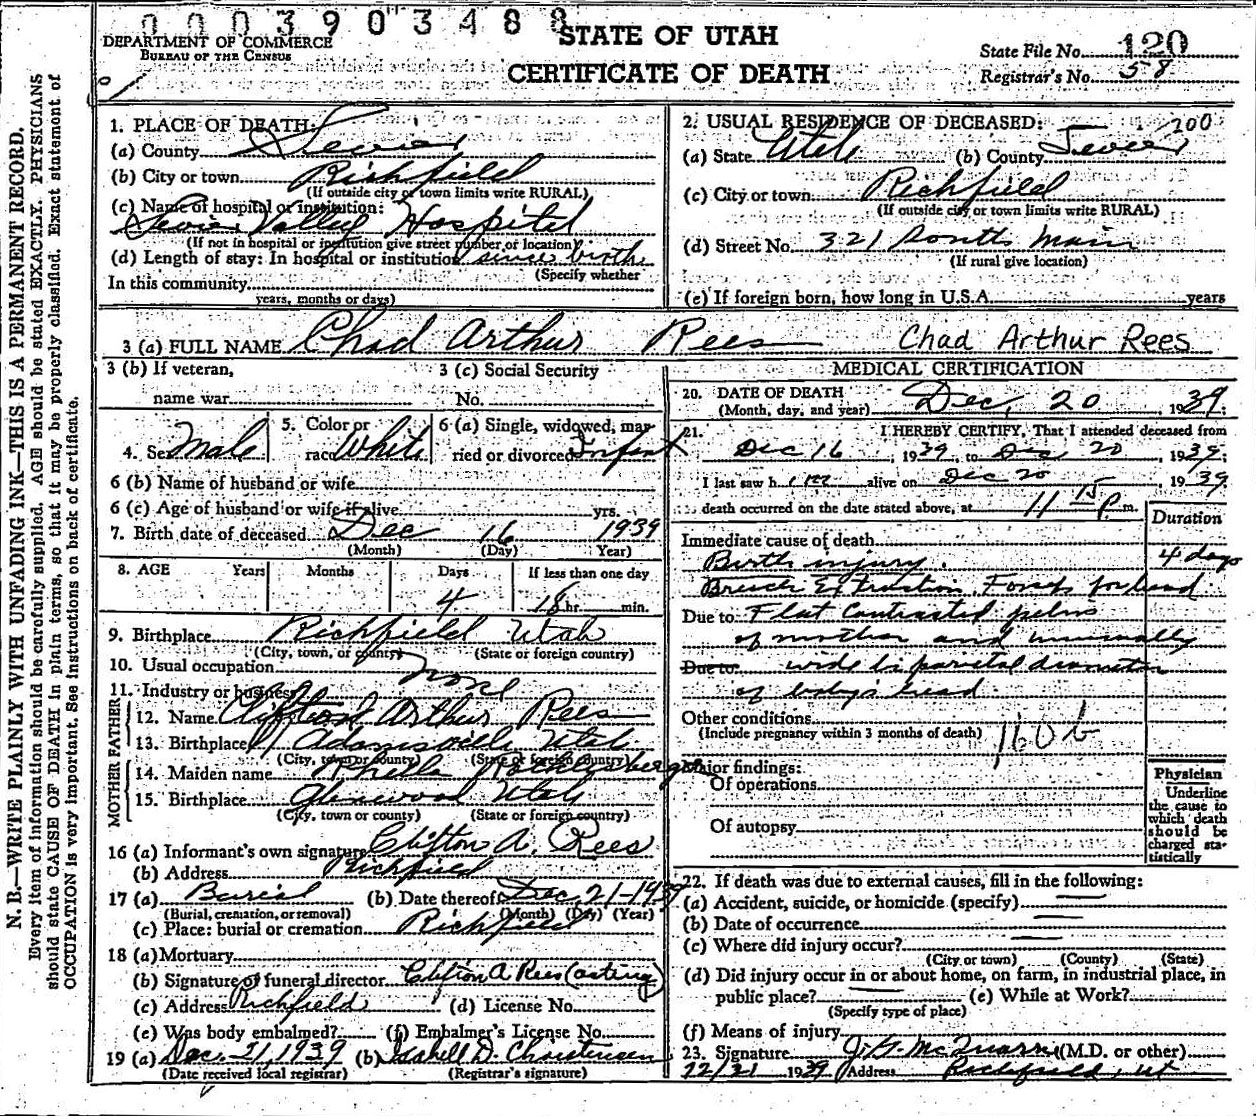 0003903488
STATE OF UTAH
DEPARTMENT OF COMMERCE
BUREAU OF THE CENSUS
CERTIFICATE OF DEATH
State File No. 120
Registrar's No. 58
N. B.—WRITE PLAINLY WITH UNFADING INK—THIS IS A PERMANENT RECORD.
Every item of information should be carefully supplied. AGE should be stated EXACTLY. PHYSICIANS
should state CAUSE OF DEATH in plain terms, so that it may be properly classified. Exact statement of
OCCUPATION is very important. See instructions on back of certificate.
1. PLACE OF DEATH:
(a) County Sevier
(b) City or town Richfield
(If outside city or town limits write RURAL)
(c) Name of hospital or institution:
Sevier Valley Hospital
(If not in hospital or institution give street number or location)
(d) Length of stay: In hospital or institution since birth
(Specify whether
In this community
years, months or days)
2. USUAL RESIDENCE OF DECEASED: 200
(a) State Utah (b) County Sevier
(c) City or town Richfield
(If outside city or town limits write RURAL)
(d) Street No. 321 South Main
(If rural give location)
(e) If foreign born, how long in U.S.A. years
3 (a) FULL NAME Chad Arthur Rees Chad Arthur Rees
3 (b) If veteran, 3 (c) Social Security
name war No.
4. Sex Male 5. Color or race White 6 (a) Single, widowed, married or divorced Infant
6 (b) Name of husband or wife
6 (c) Age of husband or wife if alive yrs.
7. Birth date of deceased Dec 16 1939
(Month) (Day) (Year)
8. AGE Years Months Days If less than one day
4 18 hr. min.
9. Birthplace Richfield Utah
(City, town, or county) (State or foreign country)
10. Usual occupation none
11. Industry or business
FATHER
12. Name Clifton Arthur Rees
13. Birthplace Adamsville Utah
(City, town or county) (State or foreign country)
MOTHER
14. Maiden name
15. Birthplace Glenwood Utah
(City, town or county) (State or foreign country)
16 (a) Informant's own signature Clifton A. Rees
(b) Address Richfield
17 (a) Burial (b) Date thereof Dec, 21-1939
(Burial, cremation, or removal) (Month) (Day) (Year)
(c) Place: burial or cremation Richfield
18 (a) Mortuary
(b) Signature of funeral director Clifton A Rees (acting)
(c) Address Richfield (d) License No.
(e) Was body embalmed? (f) Embalmer's License No.
19 (a) Dec. 21, 1939 (b) Isabell D. Christensen
(Date received local registrar) (Registrar's signature)
MEDICAL CERTIFICATION
20. DATE OF DEATH
(Month, day, and year) Dec, 20 1939;
21. I HEREBY CERTIFY, That I attended deceased from
Dec 16, 1939, to Dec 20, 1939;
I last saw him alive on Dec 20, 1939
death occurred on the date stated above, at 11 15 P. m.
Duration
Immediate cause of death
Birth injury. 4 days
Breech Extraction Forcep for head
Due to Flat Contracted pelvis
of mother and unusually
Due to wide biparietal diameter
of baby's head
Other conditions
(Include pregnancy within 3 months of death) 160b
Major findings:
Of operations
Of autopsy
Physician
Underline
the cause to
which death
should be
charged sta-
tistically
22. If death was due to external causes, fill in the following:
(a) Accident, suicide, or homicide (specify)
(b) Date of occurrence
(c) Where did injury occur?
(City or town) (County) (State)
(d) Did injury occur in or about home, on farm, in industrial place, in
public place? (e) While at Work?
(Specify type of place)
(f) Means of injury
23. Signature J. G. McQuarrie (M.D. or other)
12/21 1939 Address Richfield, Ut